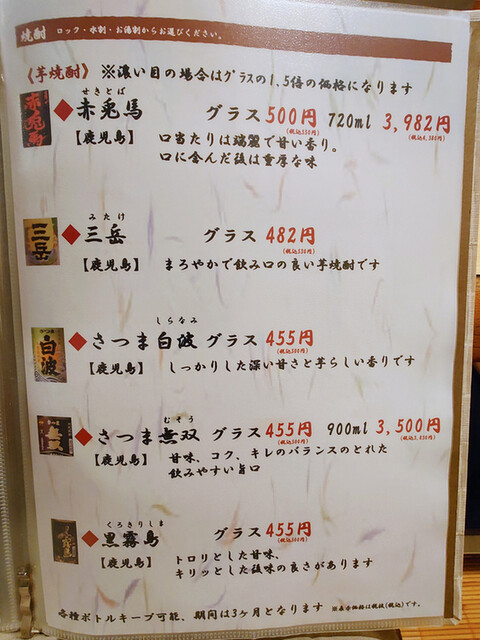 焼酎 ロック・水割・お湯割からお選びください。
《芋焼酎》 ※濃い目の場合はグラスの1.5倍の価格になります
せきとば
赤兎馬
◆赤兎馬 グラス 500円 720ml 3,982円
(税込550円) (税込4,380円)
【鹿児島】 口当たりは端麗で甘い香り。
口に含んだ後は重厚な味
みたけ
三岳
◆三岳 グラス 482円
(税込530円)
【鹿児島】 まろやかで飲み口の良い芋焼酎です
しらなみ
白波
◆さつま白波 グラス 455円
(税込500円)
【鹿児島】 しっかりした深い甘さと芋らしい香りです
むそう
◆さつま無双 グラス 455円 900ml 3,500円
(税込500円) (税込3,850円)
【鹿児島】 甘味、コク、キレのバランスのとれた
飲みやすい旨口
くろきりしま
◆黒霧島 グラス 455円
(税込500円)
【鹿児島】 トロリとした甘味、
キリッとした後味の良さがあります
各種ボトルキープ可能、期間は3ヶ月となります ※表示価格は税抜(税込)です。